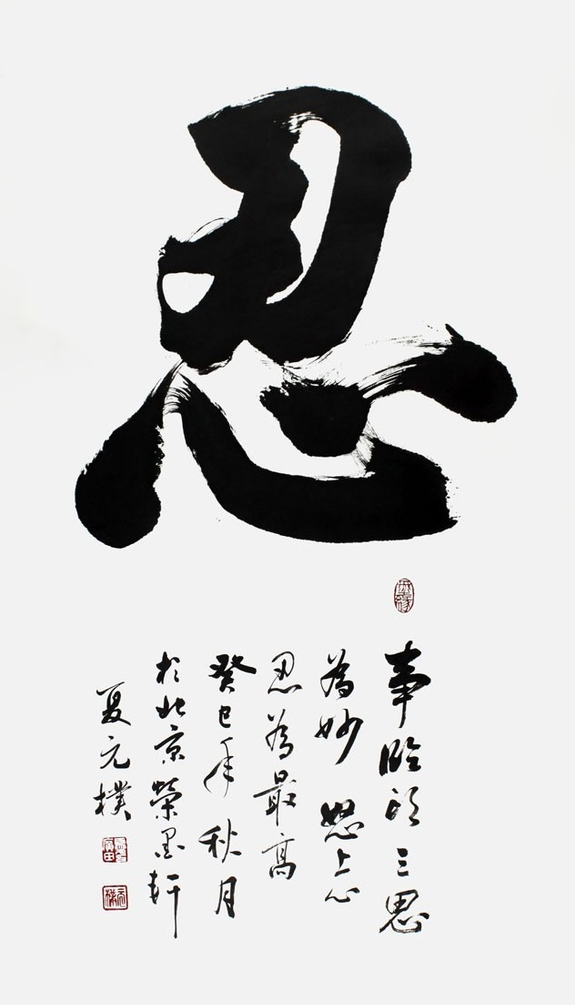 忍
事臨頭三思
為妙怒上心
忍為最高
癸巳年秋月
於北京榮墨軒
夏元樸